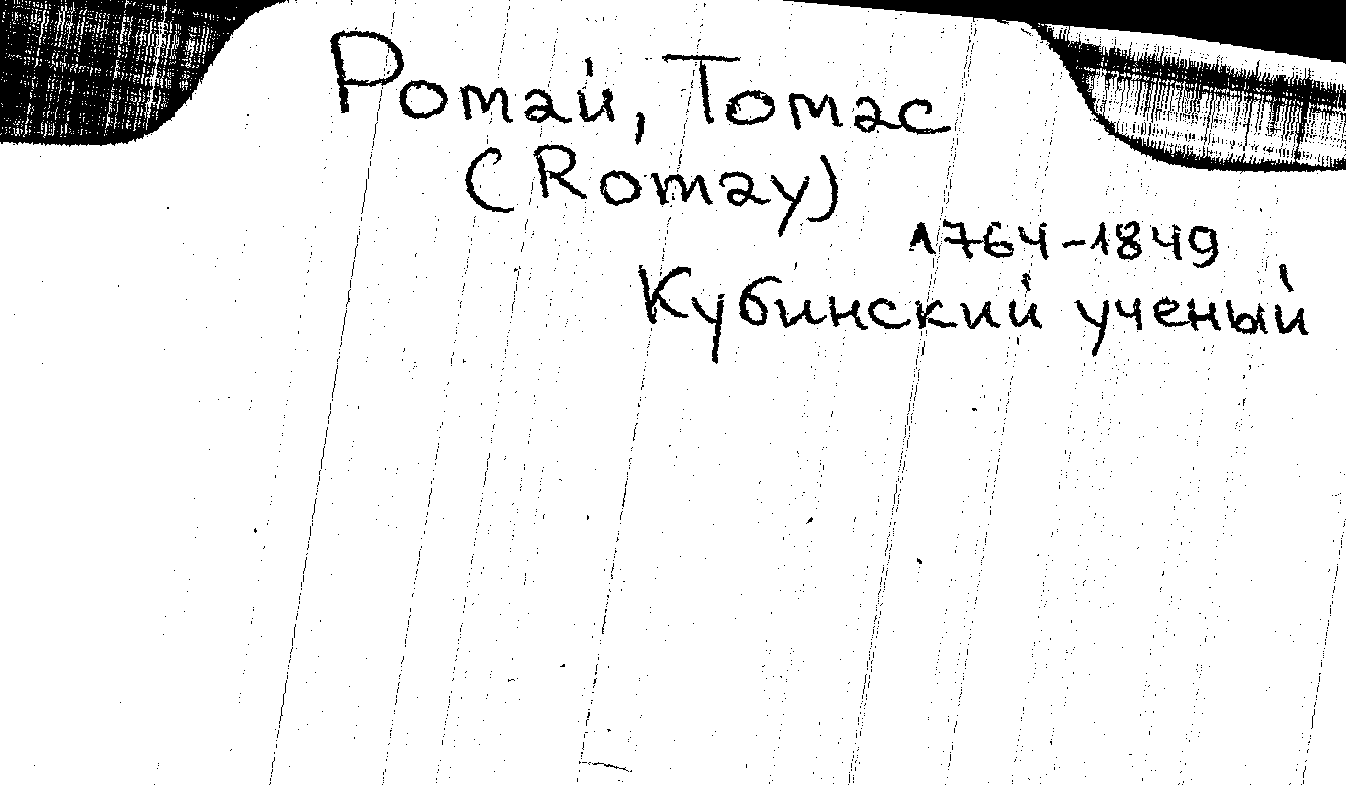 Ромай, Томас
(Romay)
1764-1849
Кубинский ученый